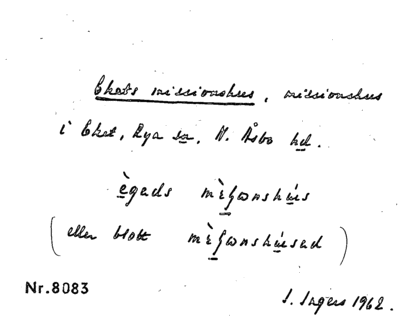 Ekets missionshus, missionshus
i Eket, Rya sn, N. Åsbo hd.
ègads mìʃɷnshús
(eller blott mìʃɷnshúsad)
Nr. 8083
I. Ingers 1962.